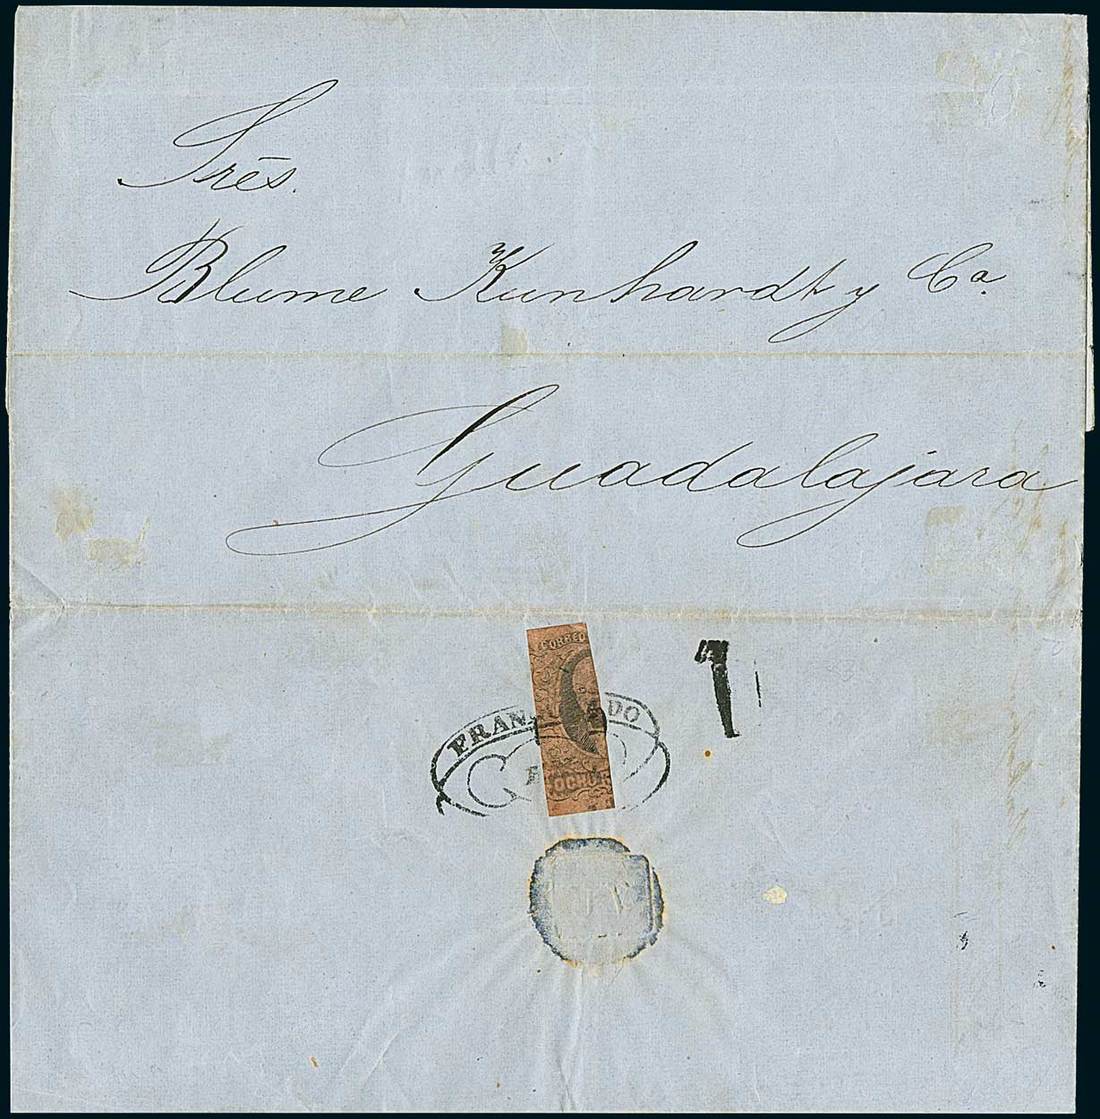 Srēs.
Blume Kunhardt y Ca.
Guadalajara
CORREO
1
FRAN ADO
OCHO R